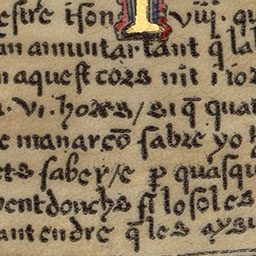 esire i son viij. qu
an amuntar tant q̃ la
n aquest cors nit i ior
s. vi. hores / si q̃ quat
e manarcõ sabre yo h
ets saber / e ꝑ quasqu
uent donchs si lo sol es
ant endre q̃ les aygu